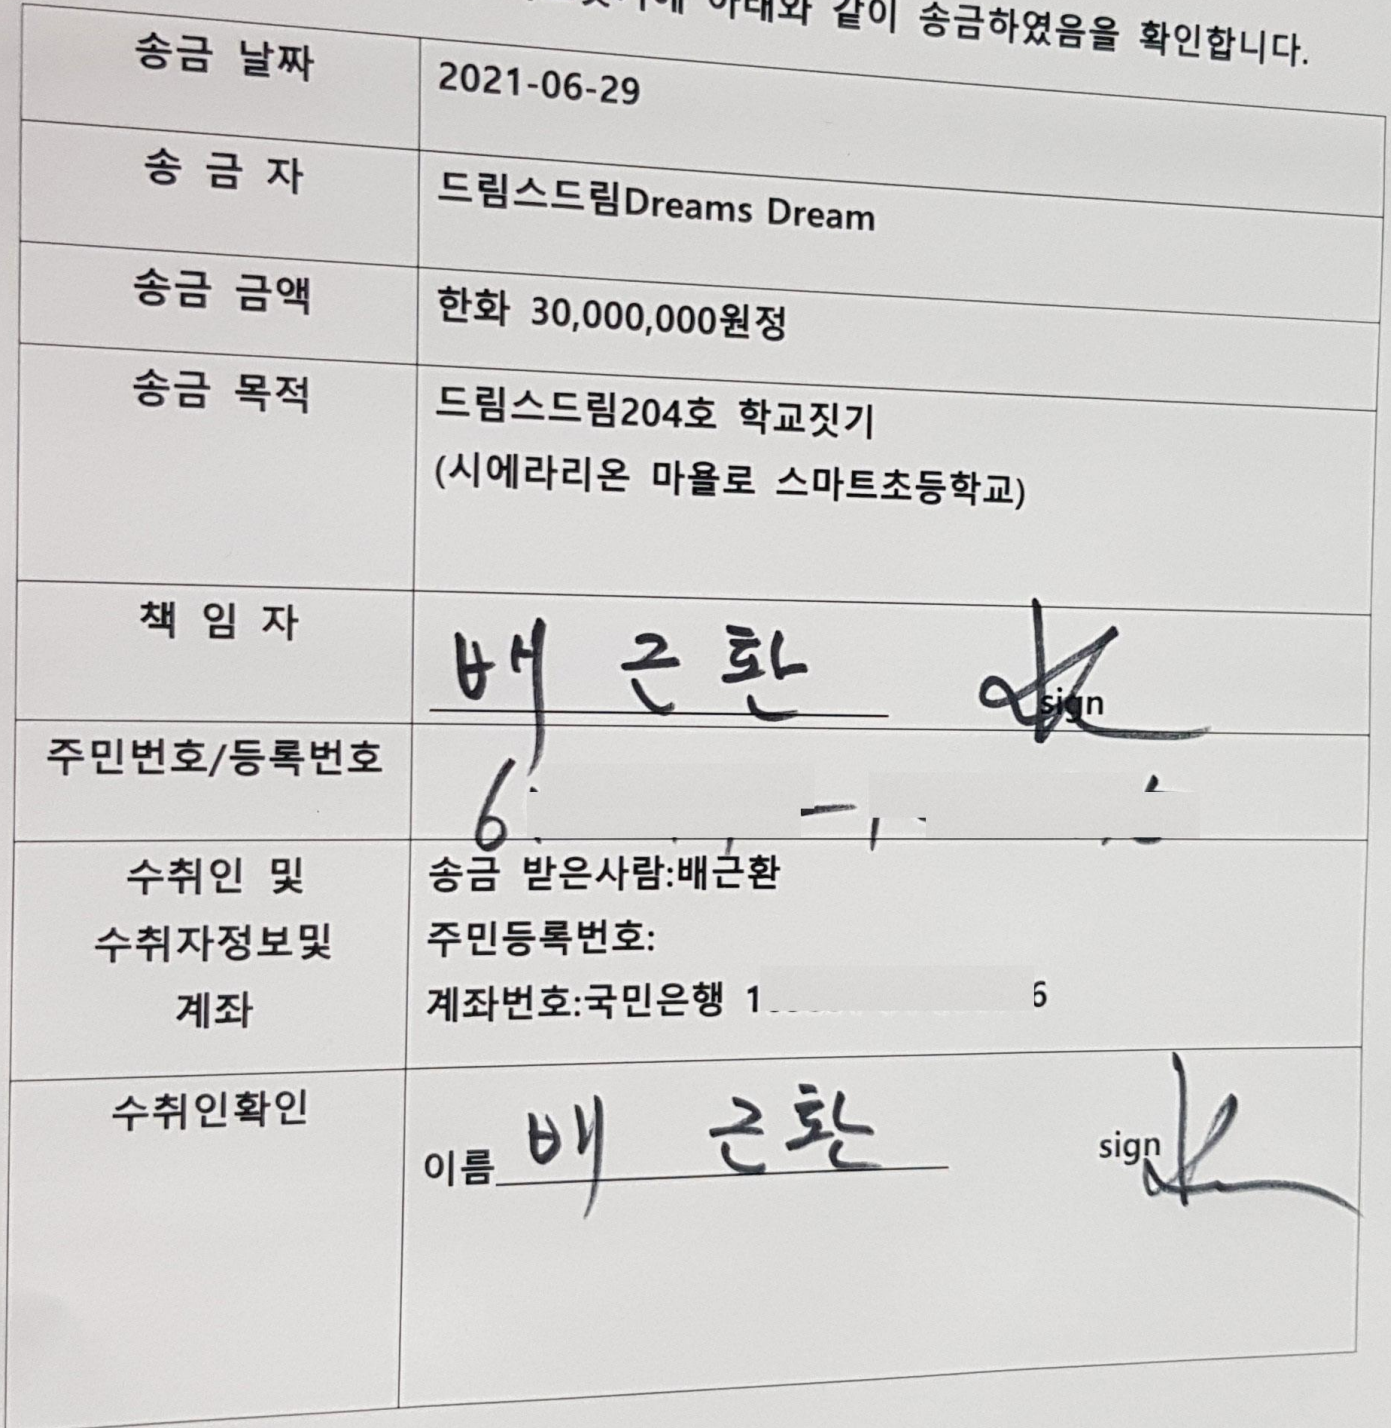 아래와 같이 송금하였음을 확인합니다.
송금 날짜
2021-06-29
송 금 자
드림스드림Dreams Dream
송금 금액
한화 30,000,000원정
송금 목적
드림스드림204호 학교짓기
(시에라리온 마욜로 스마트초등학교)
책 임 자
배 근 환 sign
주민번호/등록번호
6
수취인 및
수취자정보및
계좌
송금 받은사람:배근환
주민등록번호:
계좌번호:국민은행 1 6
수취인확인
이름 배 근환 sign